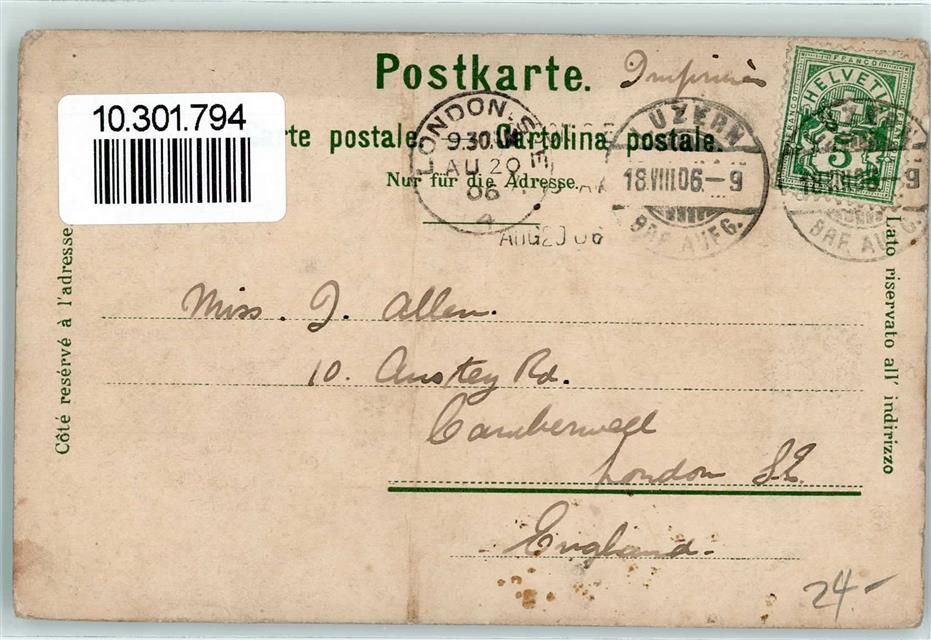 Postkarte. Imprimés
10.301.794
Carte postale. Cartolina postale.
Nur für die Adresse.
LONDON. S.E.
9.30 AM
AU 20
06
4
AUG 20 06
LUZERN
18.VIII.06.-9
BRF. AUFG.
FRANCO
HELVETIA
5
LUZERN
18.VIII.06.-9
BRF. AUFG.
Côté resérvé à l'adresse.
Lato riservato all' indirizzo
Miss. J. Allen.
10. Anstey Rd.
Camberwell
London S.E.
England.
24.-